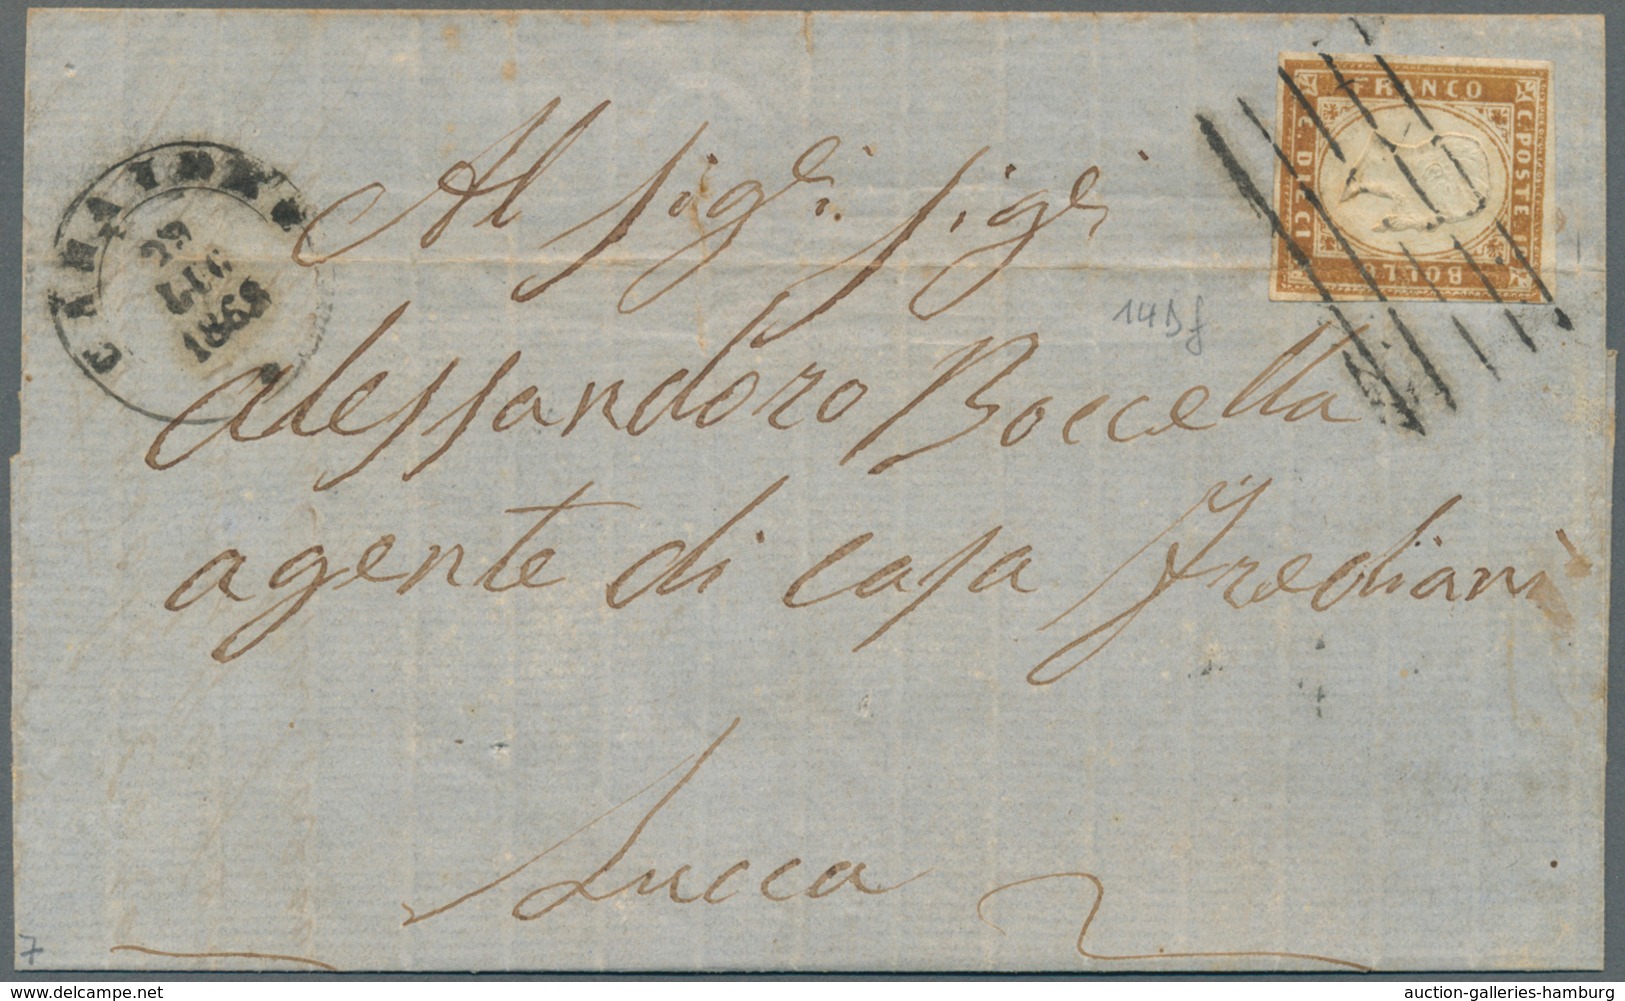 CAMAIORE
29
LUG
1863
FRANCO
C. POSTE
BOLLO
C. DIECI
Al sig.r sig.r
Alessandro Boccella
14Df
agente di casa Frediani
Lucca
7
auction-galleries-hamburg